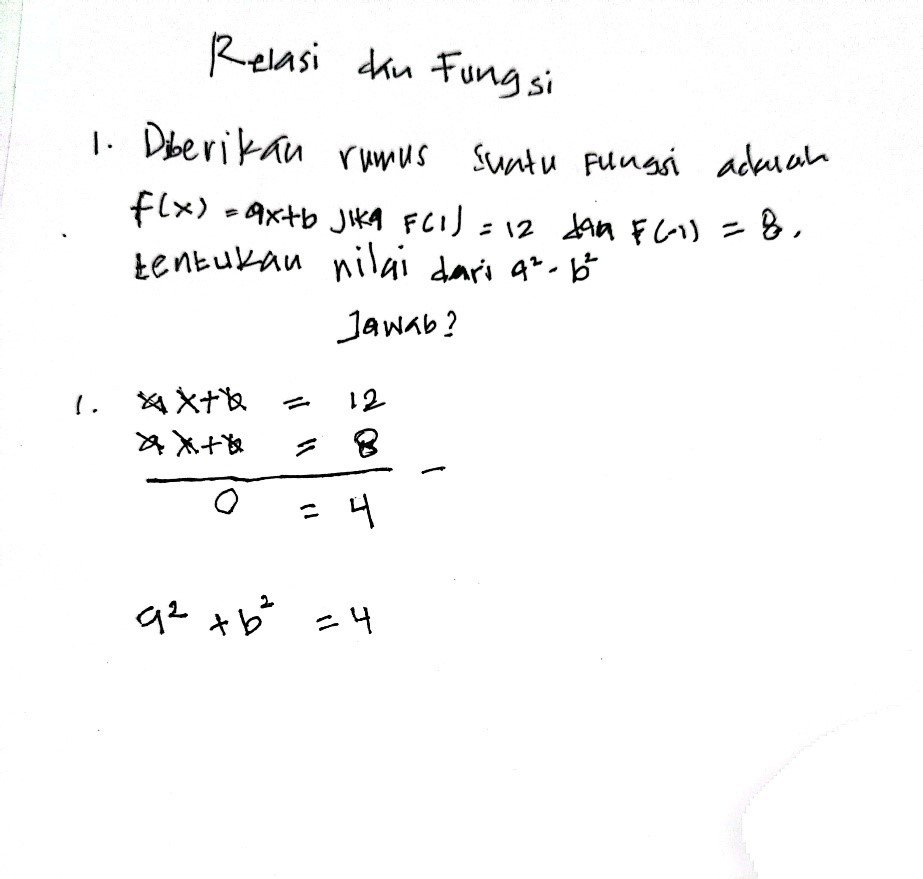 Relasi dan Fungsi
1. Diberikan rumus suatu Fungsi adalah
f(x) = ax+b Jika F(1) = 12 dan F(-1) = 8,
tentukan nilai dari a² - b²
Jawab?
1. ax+b = 12
ax+b = 8
—
0 = 4
a² + b² = 4